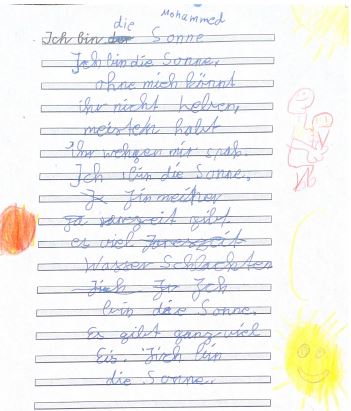 Mohammed
die
Ich bin der Sonne
Ich bin die Sonne,
ohne mich könnt
ihr nicht
meisten habt
ihr wehgen mir spaß.
Ich bin die Sonne.
gibt
es viel Jareszeit
Wasser Schlachten
Ich
bin die Sonne.
Es gibt ganz viel
Eis. Iich bin
die Sonne.